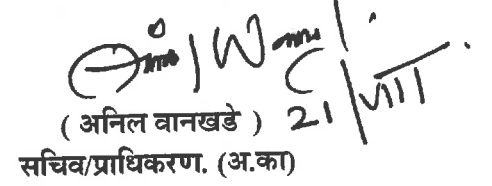 ( अनिल वानखडे ) 21/VIII
सचिव/प्राधिकरण. (अ.का)